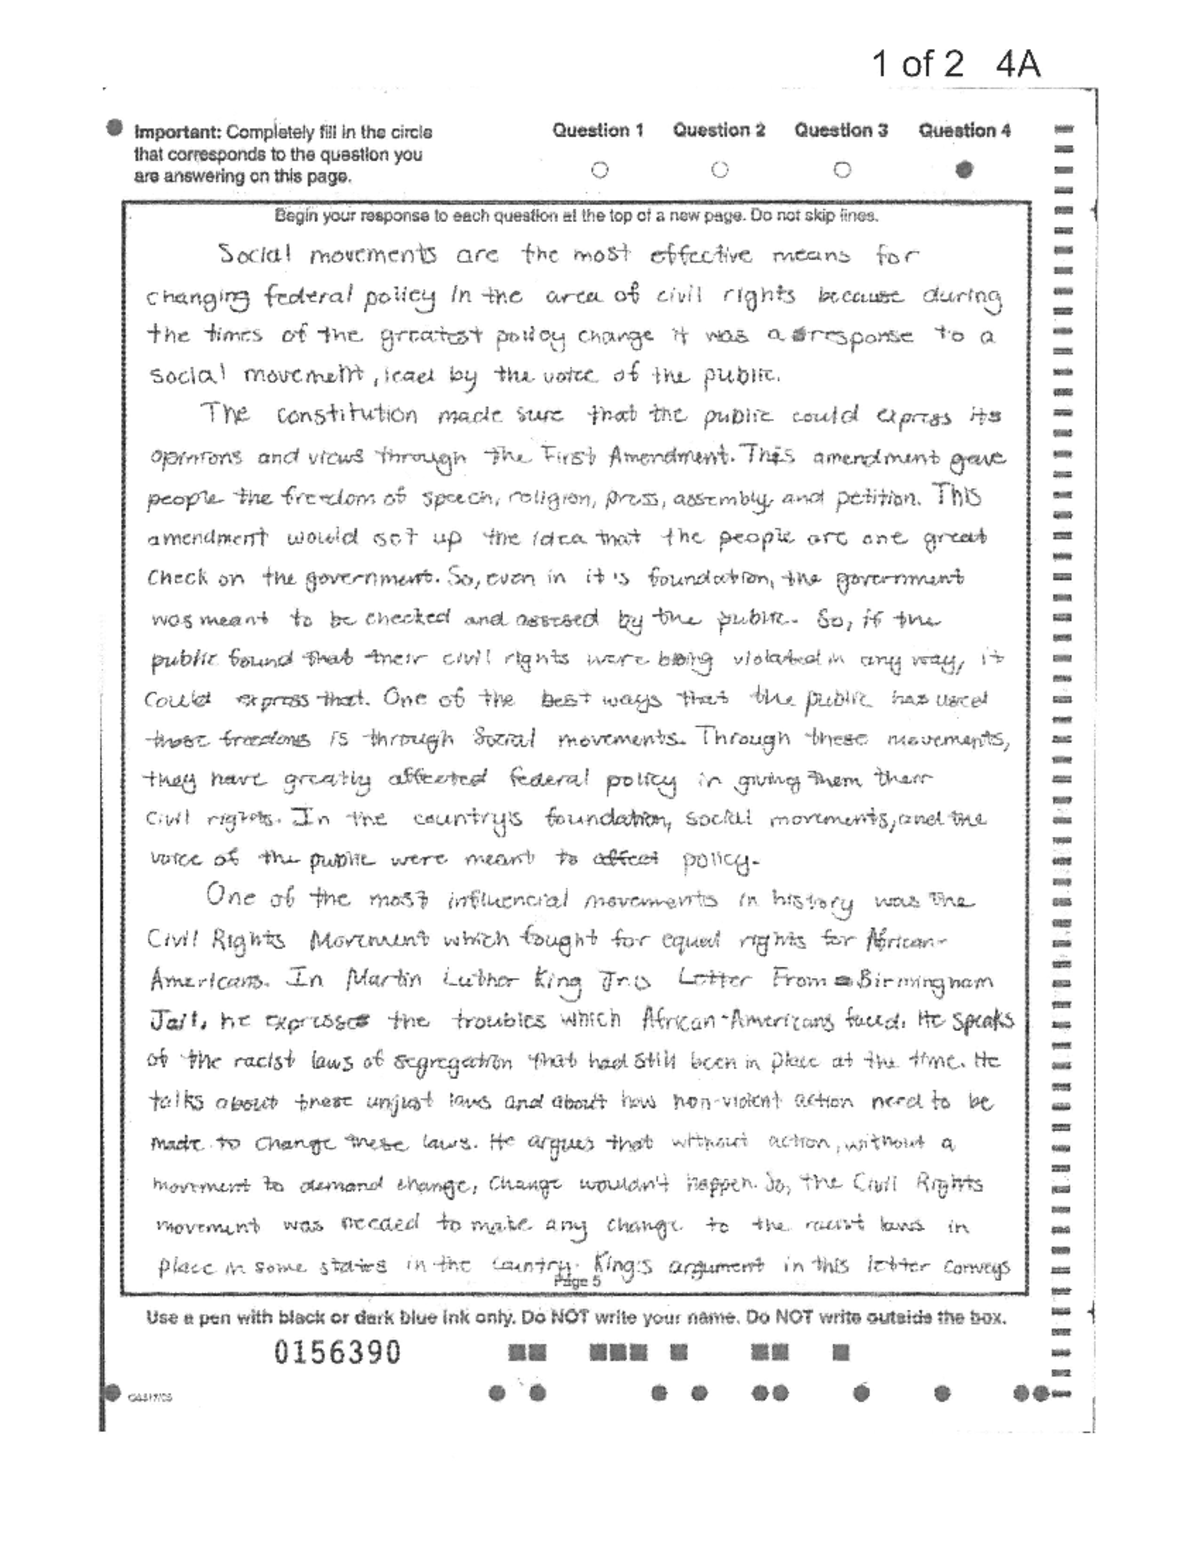 1 of 2 4A
Important: Completely fill in the circle
that corresponds to the question you
are answering on this page.
Question 1 Question 2 Question 3 Question 4
Begin your response to each question at the top of a new page. Do not skip lines.
Social movements are the most effective means for
changing federal policy in the area of civil rights because during
the times of the greatest policy change it was a response to a
social movement, lead by the voice of the public.
The constitution made sure that the public could express its
opinions and views through the First Amendment. This amendment gave
people the freedom of speech, religion, press, assembly, and petition. This
amendment would set up the idea that the people are one great
check on the government. So, even in it's foundation, the government
was meant to be checked and assesed by the public. So, if the
public found that their civil rights were being violated in any way, it
could express that. One of the best ways that the public has used
those freedoms is through social movements. Through these movements,
they have greatly affected federal policy in giving them their
civil rights. In the country's foundation, social movements, and the
voice of the public were meant to affect policy.
One of the most influencial movements in history was the
Civil Rights Movement which fought for equal rights for African-
Americans. In Martin Luther King Jr.'s Letter From Birmingham
Jail, he expresses the troubles which African-Americans faced. He speaks
of the racist laws of segregation that had still been in place at the time. He
talks about these unjust laws and about how non-violent action need to be
made to change these laws. He argues that without action, without a
movement to demand change, change wouldn't happen. So, the Civil Rights
movement was needed to make any change to the racist laws in
place in some states in the country. King's argument in this letter conveys
Page 5
Use a pen with black or dark blue ink only. Do NOT write your name. Do NOT write outside the box.
0156390